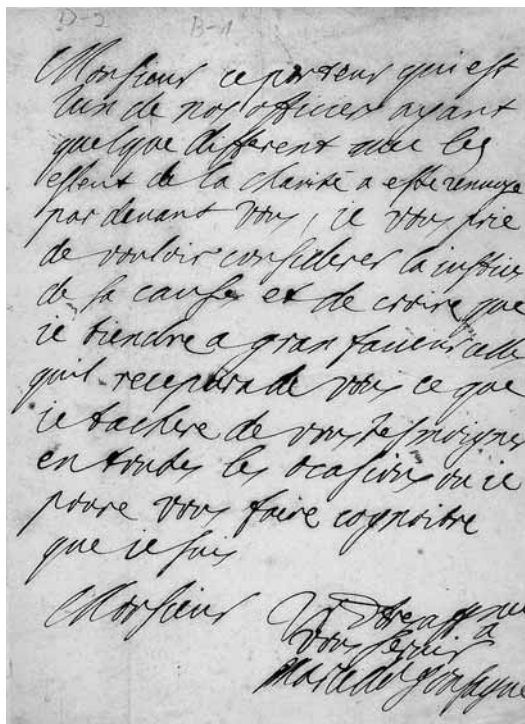 D-2 B-1
Monsieur ce porteur qui est
lun de nos officier ayant
quelque different avec les
de la charité a esté renvoye
par devant vous, ie vous prie
de vouloir considerer la iustice
de sa cause et de croire que
ie tiendre a gran faveur celle
quil recepvra de vous ce que
ie tachere de vous tesmoigner
en toutes les ocasions ou ie
poure vous faire cognoitre
que ie suis
Monsieur
Votre
a
vous servir
Marie de gonsague